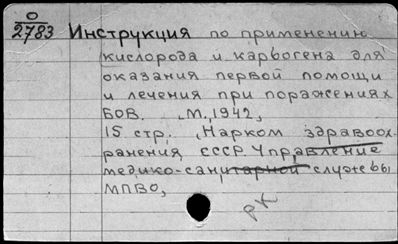 О
2783
Инструкция по применению
кислорода и карбогена для
оказания первой помощи
и лечения при поражениях
БОВ. М., 1942,
15 стр. Нарком здравоох-
ранения СССР. Управление
медико-санитарной службы
МПВО,
РК